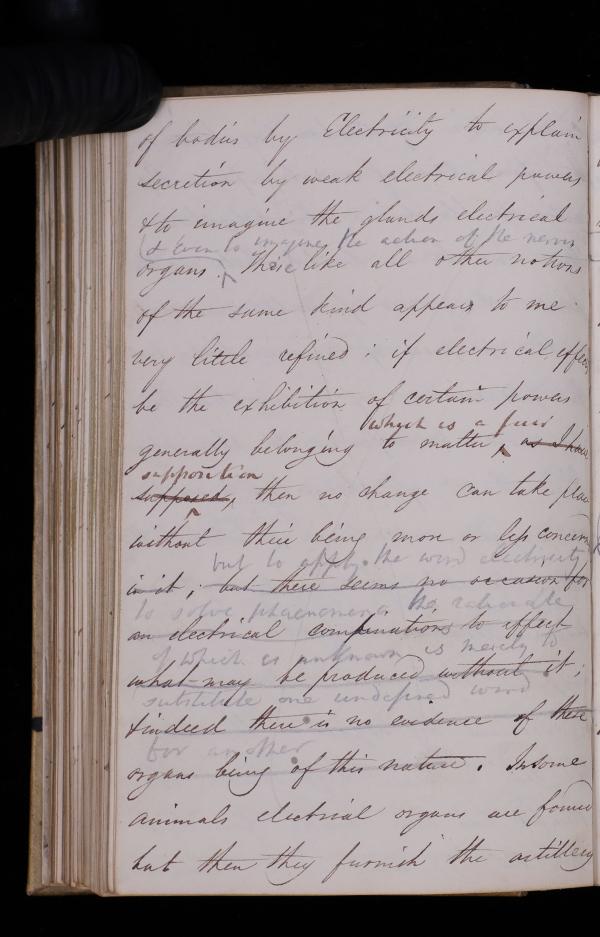 of bodies by Electricity to explain
secretion by weak electrical powers
& to imagine the glands electrical
& Even to imagine the action of the nerves
organs. These like all other notions
of the same kind appears to me
very little refined; if electrical effects
be the exhibition of certain powers
which is a fair
generally belonging to matter, as I have
supposition
supposed, then no change can take place
without their being more or less concern
but to apply the word electricity
in it; but there seems no occasion for
to solve phaenomena the rationale
an electrical combinations to effect
of which is unknown is merely to
what may be produced without it;
substitute one undefined word
& indeed there is no evidence of these
for another
organs being of this nature. In some
animals electrial organs are found
but then they furnish the artillery